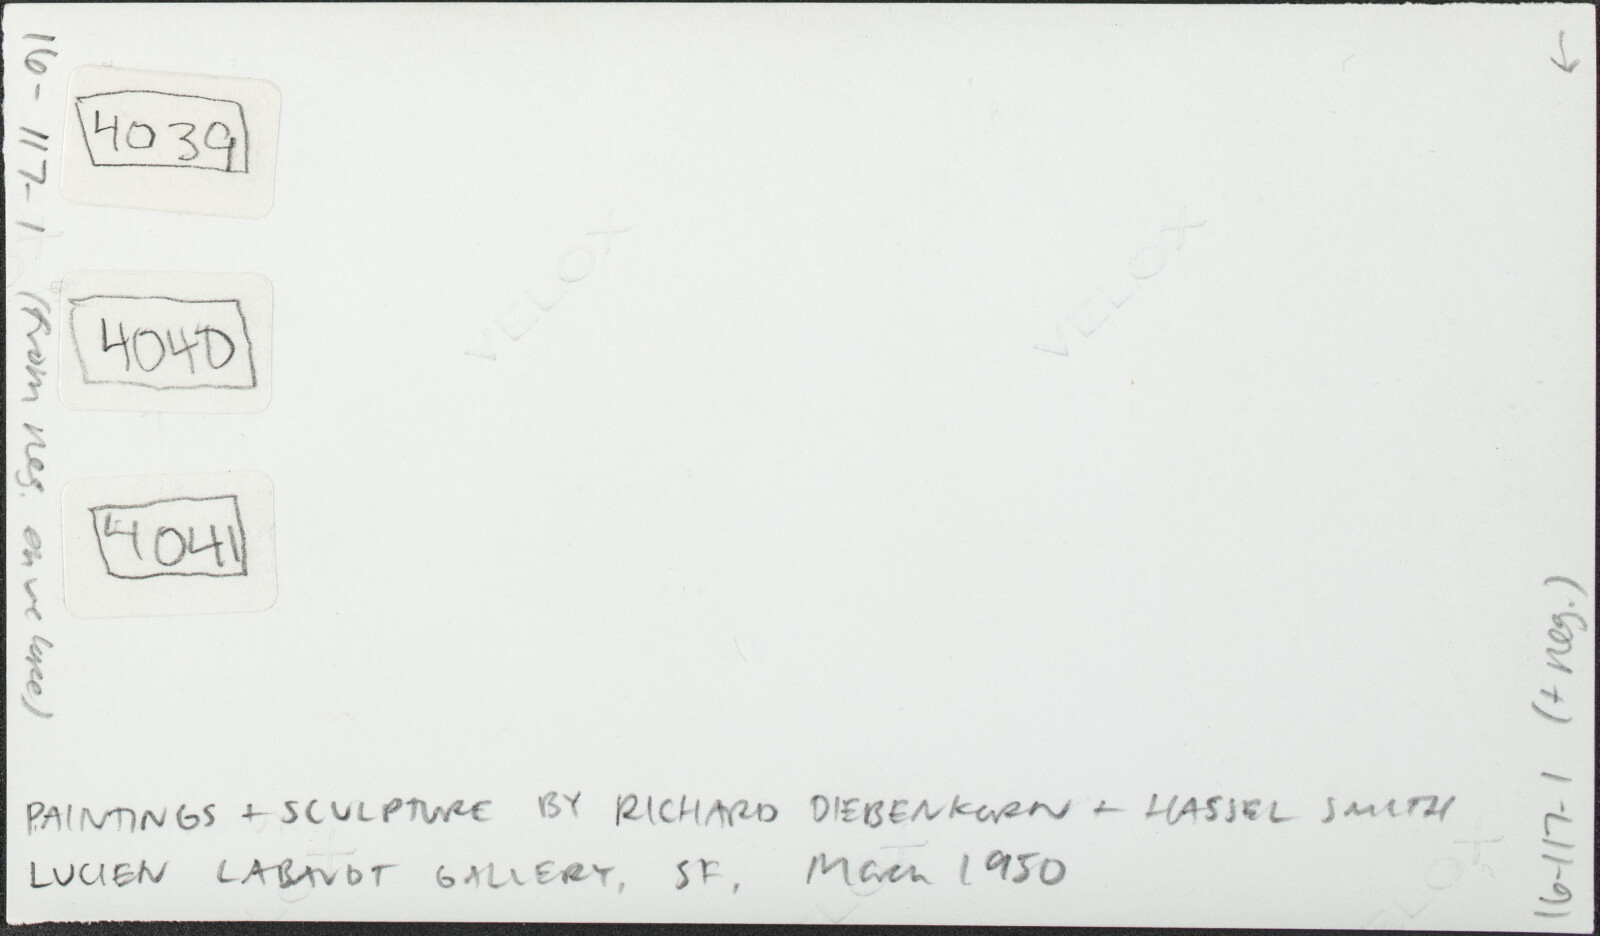 16-117-1 (from neg. envelope)
4039
4040
4041
VELOX
VELOX
PAINTINGS + SCULPTURE BY RICHARD DIEBENKORN + HASSEL SMITH
LUCIEN LABAUDT GALLERY, SF, March 1950
16-117-1 (+ neg.)
←